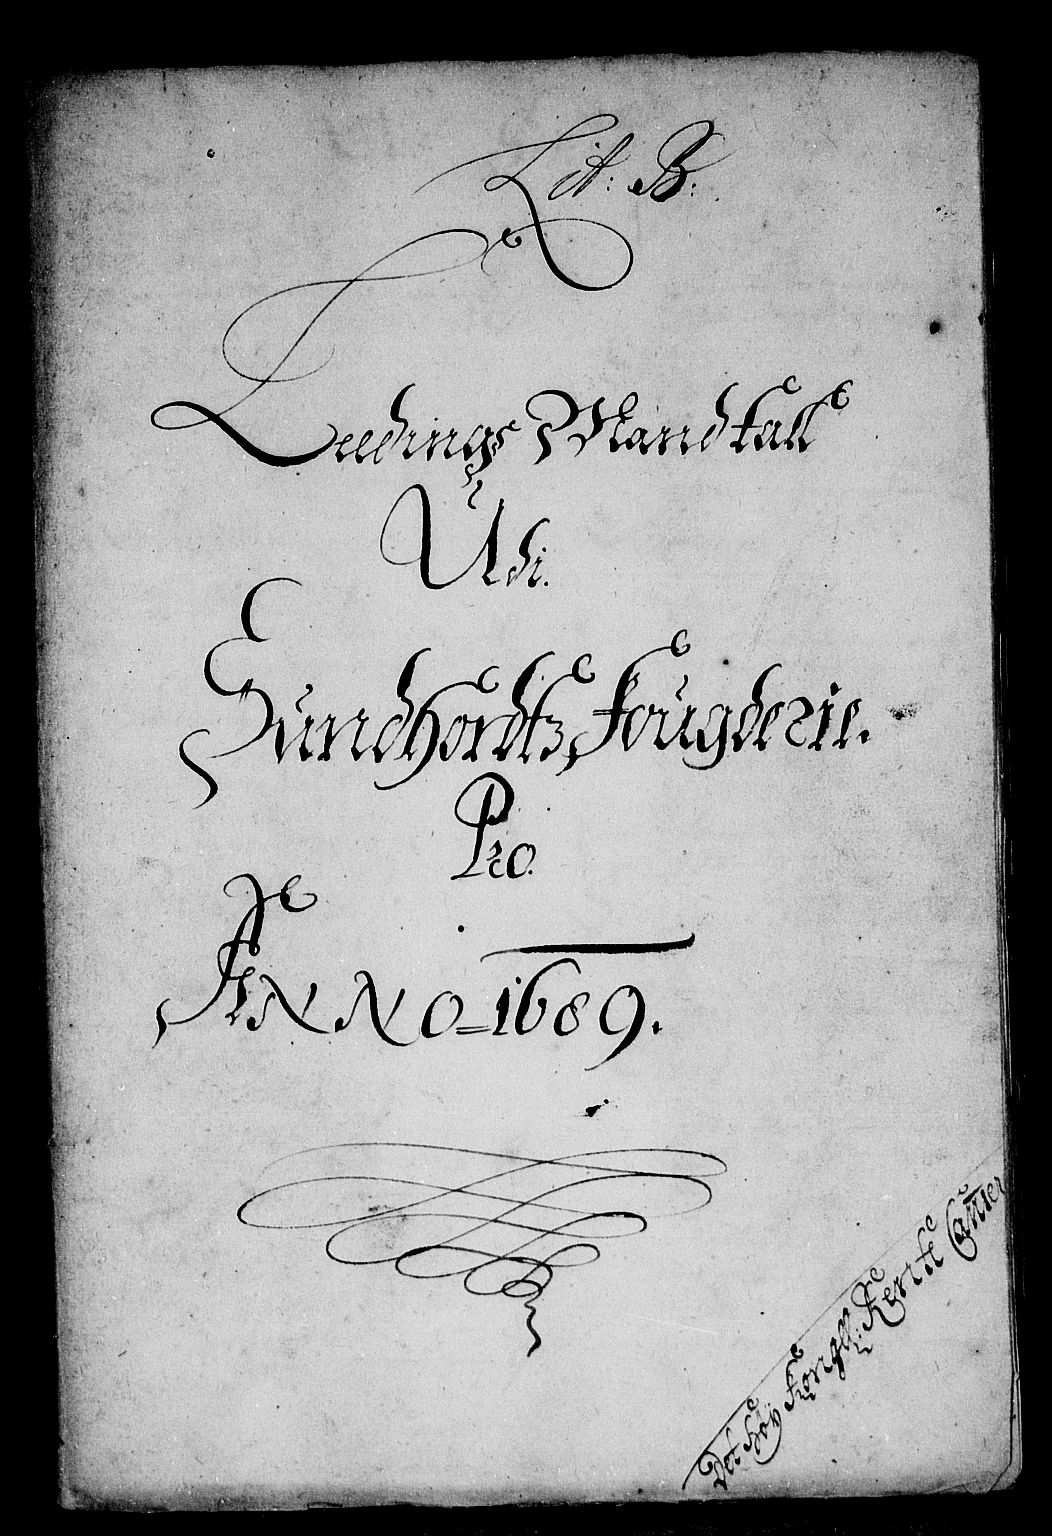 Lit: B:
Leedings Mandtall
Udi.
Sundhordtz Fougderie.
Pro.
ANNO=1689.
Det høy Kongll: Rente Camer